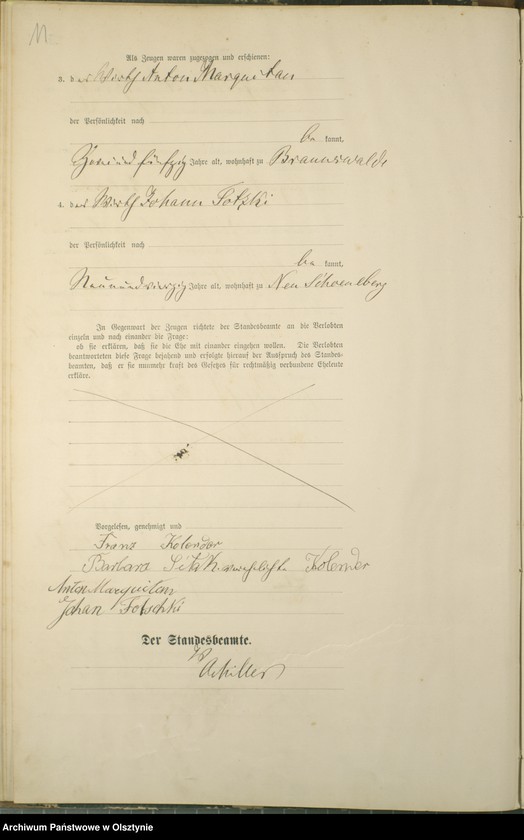 11
Als Zeugen waren zugezogen und erschienen:
3. der Wirth Anton Marquitan
der Persönlichkeit nach
be kannt,
Jahre alt, wohnhaft zu Braunswalde
4. der Wirth Johann
der Persönlichkeit nach
be kannt,
Neunundvierzig Jahre alt, wohnhaft zu Neu Schoeneberg
In Gegenwart der Zeugen richtete der Standesbeamte an die Verlobten
einzeln und nach einander die Frage:
ob sie erklären, daß sie die Ehe mit einander eingehen wollen. Die Verlobten
beantworteten diese Frage bejahend und erfolgte hierauf der Ausspruch des Standes-
beamten, daß er sie nunmehr kraft des Gesetzes für rechtmäßig verbundene Eheleute
erkläre.
Vorgelesen, genehmigt und
Franz Kolender
Barbara verehlichte Kolender
Anton Marquitan
Johan
Der Standesbeamte.
Archiwum Państwowe w Olsztynie